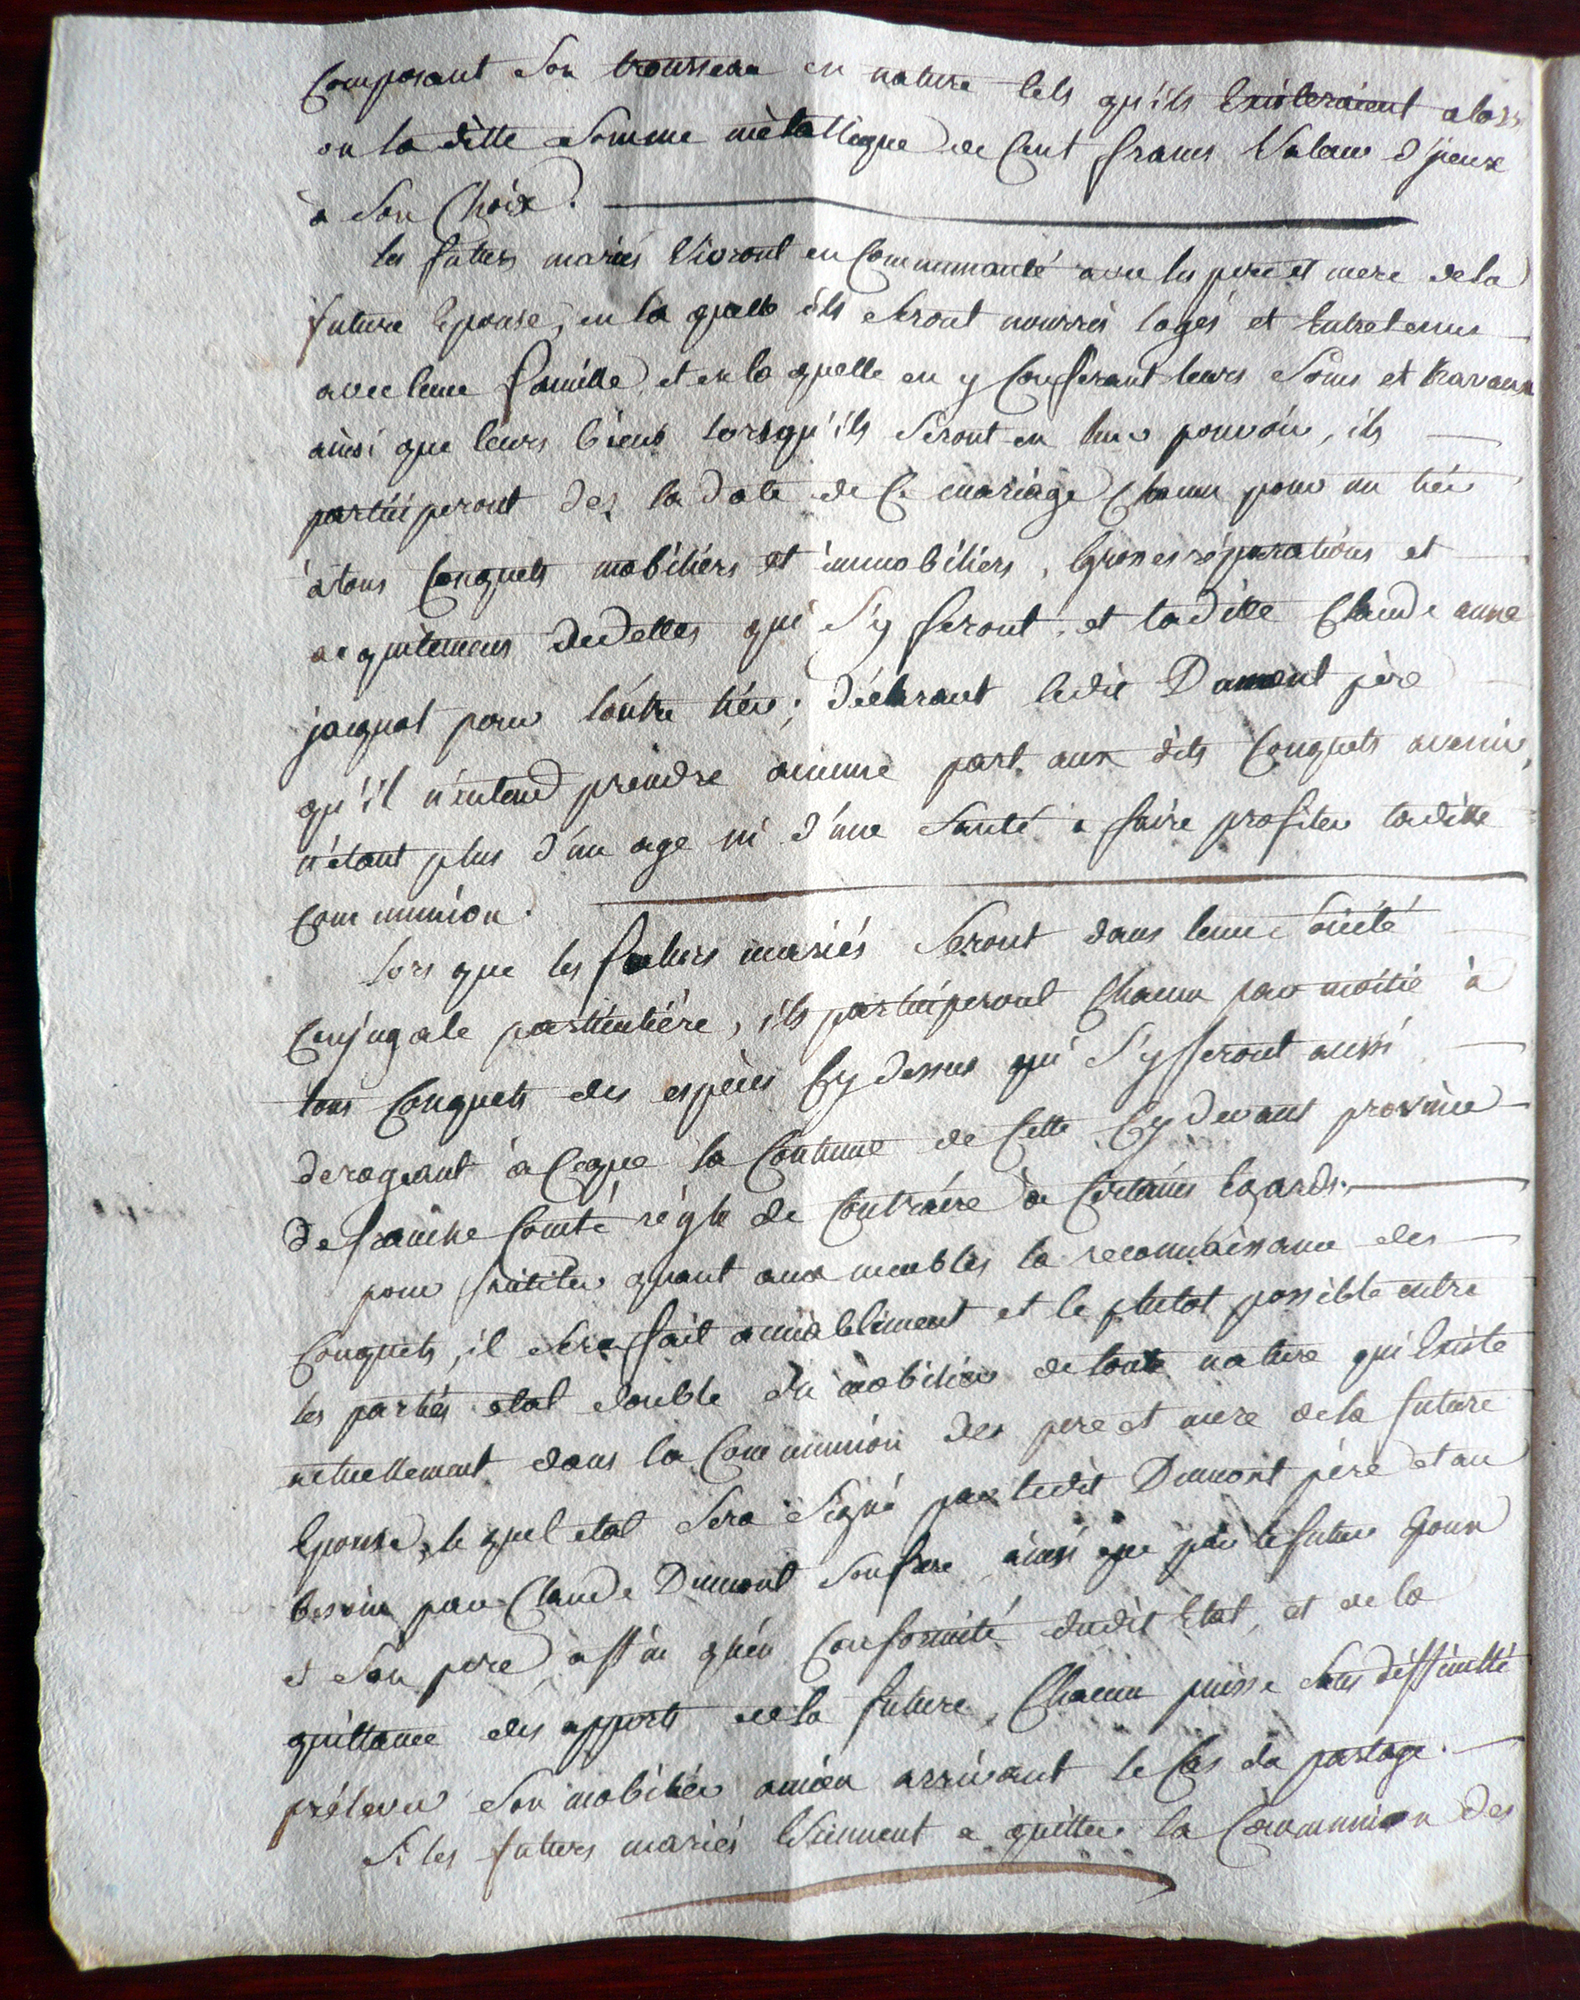 Composant son trousseau en nature tels qu'ils Existeraient alors
ou la ditte somme métallique de Cent francs Valeur d'yceux
a son Choix.
les futurs mariés Vivront en Communauté avec les pere et mere de la
future Epouse, en la quelle ils seront nourris logés et Entretenus
avec leur famille, et en la quelle en y Conferant leurs soins et travaux
ainsi que leurs biens lorsqu'ils seront en leur pouvoir, ils
participeront des la date de Ce mariage Chacun pour un tier
à tous Conquets mobiliers et immobiliers, Grosses réparations et
acquitemens de dettes qui s'y feront, et laditte Claude anne
jacquot pour l'autre tier; déclarant ledit Dumont père
qu'il n'entend prendre aucune part aux dits Conquets avenir,
n'étant plus d'un age ni d'une santé a faire profiter laditte
Communion.
lors que les futurs mariés seront dans leur société
Conjugale particulière, ils participeront Chacun par moitié à
tous Conquets des espèces Cy dessus qui s'y feront aussi
derogeant à Ceque la Coutume de Cette Cy devant province
de franche Comté régle de Contraire à Certains Egards.
pour faciliter quant aux meubles la reconnaissance des
Conquets, il sera fait amiablement et le plutot possible entre
les parties état double du mobilier de toute nature qui Existe
actuellement dans la Communion des pere et mere de la future
Epouse, le quel etat sera signé par ledit Dumont père et au
besoin par Claude Dumont son frere, ainsi que par le futur Epoux
et son pere, affin qu'en Conformité dudit Etat, et de la
quittance des apports de la future, Chacun puisse sans difficulté
prélever son mobilier ancien arrivant le Cas du partage.
Si les futurs mariés Viennent a quitter la Communion des